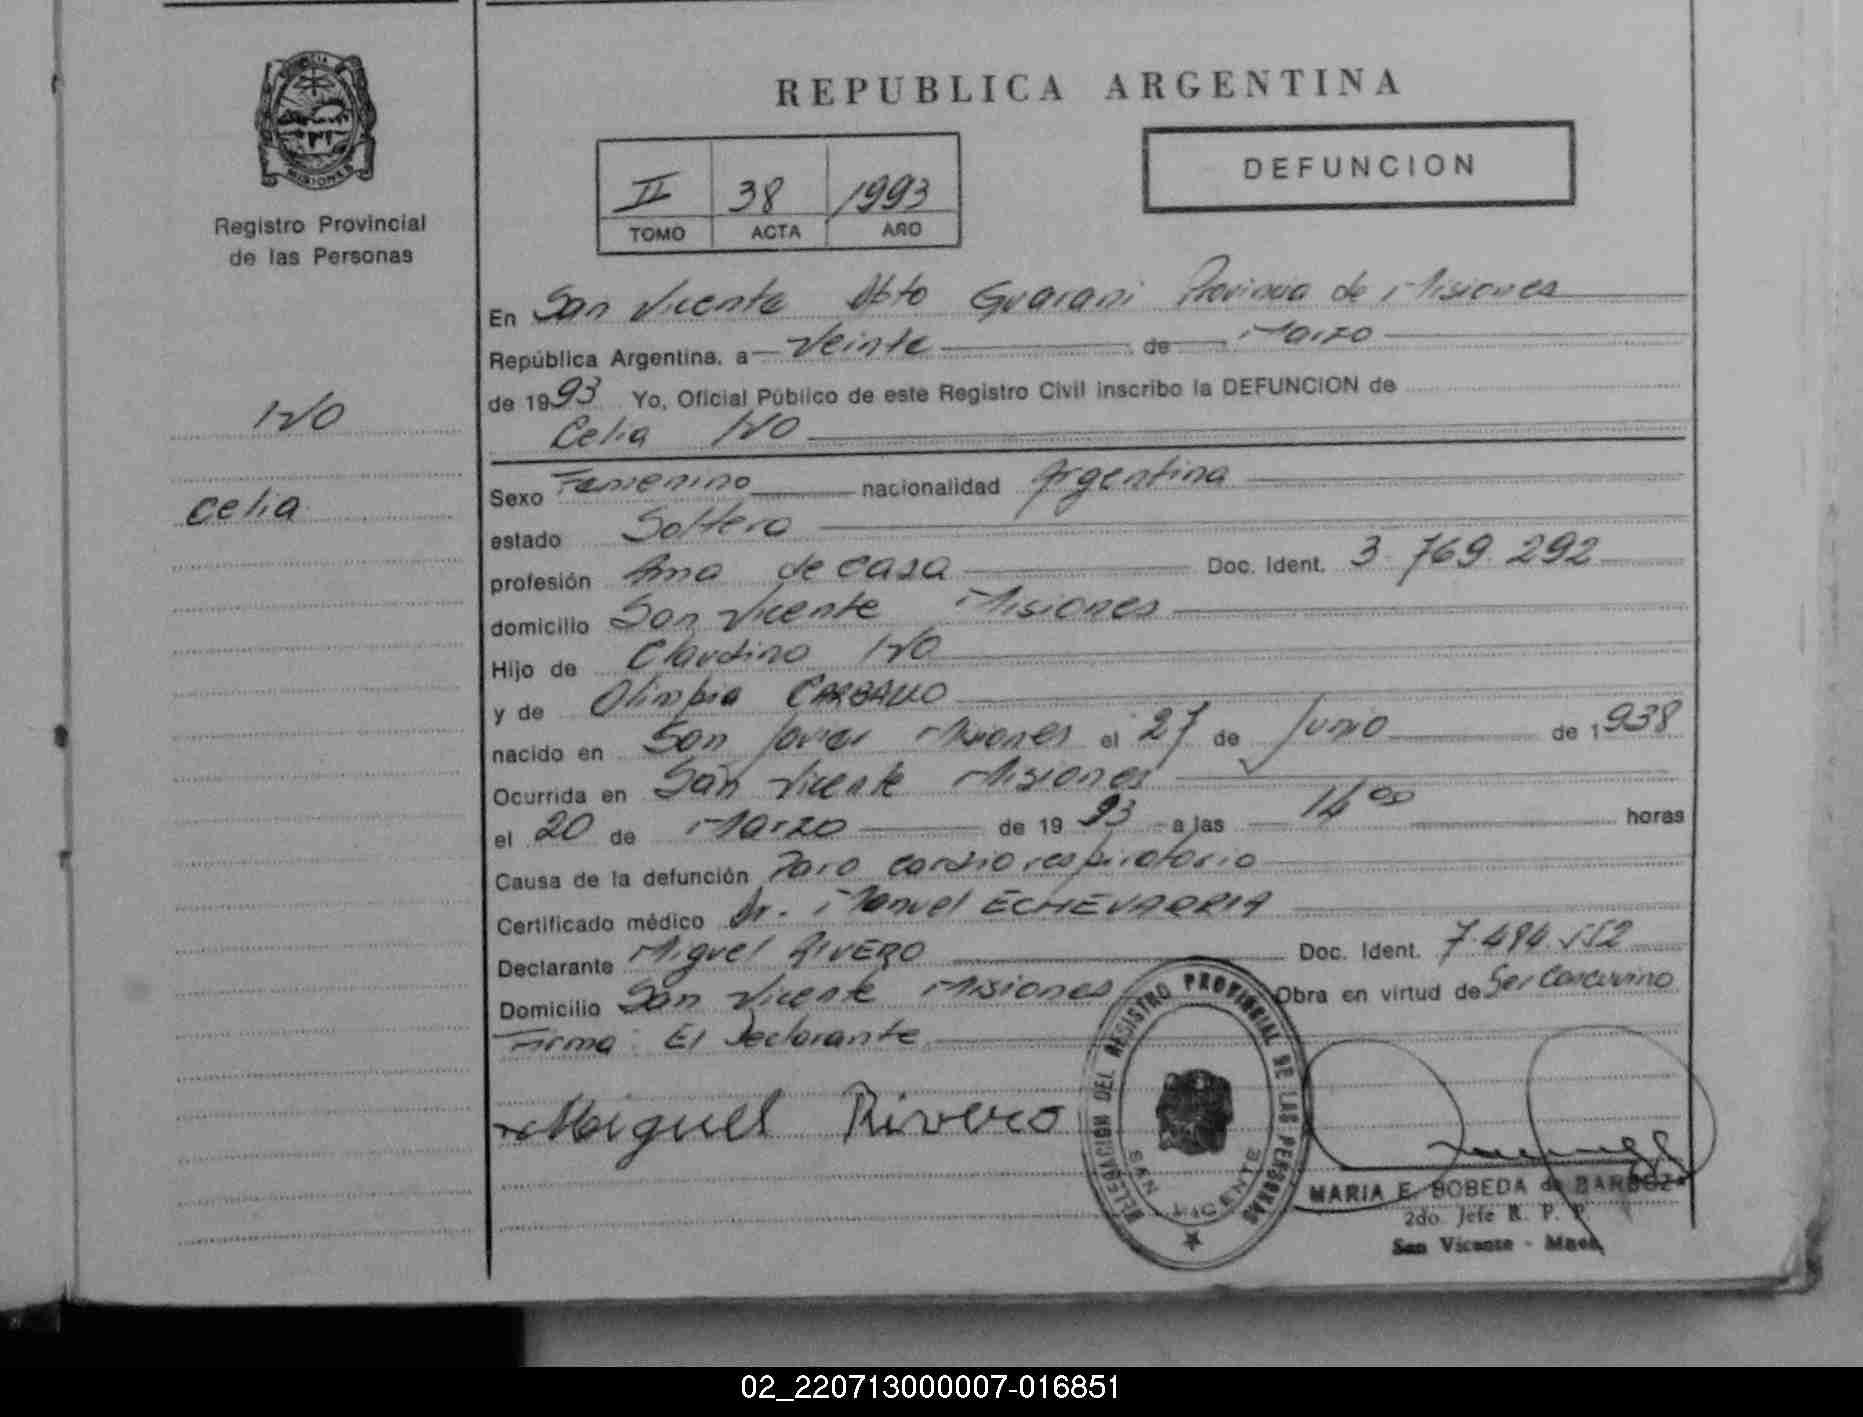 REPUBLICA ARGENTINA
PROVINCIA
MISIONES
Registro Provincial
de las Personas
II 38 1993
TOMO ACTA AÑO
DEFUNCION
IVO
Celia
En San Vicente Dpto Guarani Provincia de Misiones
República Argentina, a Veinte de Marzo
de 1993 Yo, Oficial Público de este Registro Civil inscribo la DEFUNCION de
Celia IVO
Sexo Femenino nacionalidad Argentina
estado Soltera
profesión Ama de casa Doc. Ident. 3.769.292
domicilio San Vicente Misiones
Hijo de Claudino IVO
y de Olimpia CARBALLO
nacido en San Javier Misiones el 27 de Junio de 1938
Ocurrida en San Vicente Misiones
el 20 de Marzo de 1993 a las 14 00 horas
Causa de la defunción Paro cardio respiratorio
Certificado médico Dr. Manuel ECHEVARRIA
Declarante Miguel RIVERO Doc. Ident. 7.494.552
Domicilio San Vicente Misiones Obra en virtud de Ser Concuvino
Firma: El Declarante
Miguel Rivero
DELEGACION DEL REGISTRO PROVINCIAL DE LAS PERSONAS
SAN VICENTE
MARIA E. BOBEDA de BARBOZA
2do. Jefe R. P. P.
San Vicente - Mnes.
02_220713000007-016851